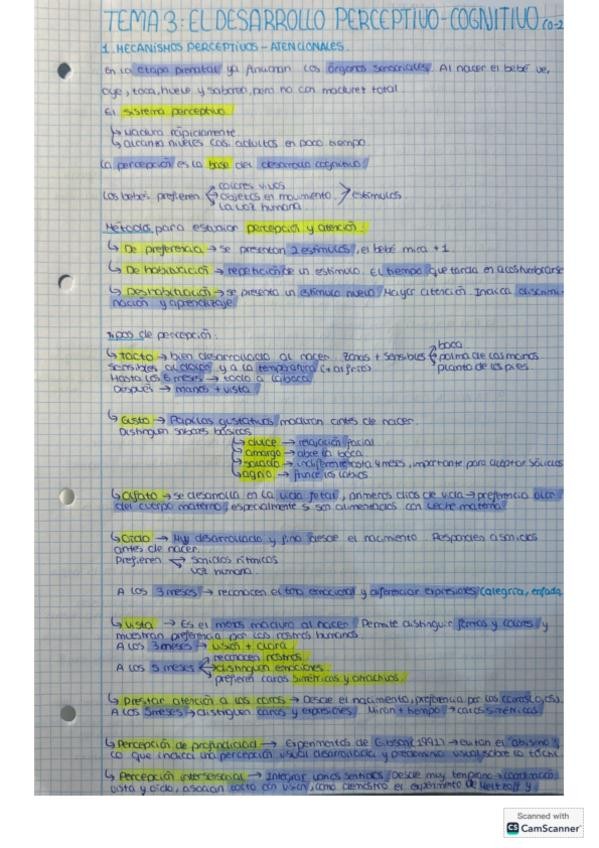 TEMA 3: EL DESARROLLO PERCEPTIVO-COGNITIVO (0-2
1. MECANISMOS PERCEPTIVOS - ATENCIONALES.
En la etapa prenatal ya funcionan los órganos sensoriales. Al nacer el bebé ve,
oye, toca, huele y saborea, pero no con madurez total.
El sistema perceptivo
↳ Madura rápidamente
↳ alcanza niveles casi adultos en poco tiempo.
La percepción es la base del desarrollo cognitivo
colores vivos
Los bebés prefieren objetos en movimiento estímulos
La voz humana
Métodos para estudiar percepción y atención:
↳ De preferencia → se presentan 2 estímulos, el bebé mira + 1.
↳ De habituación → repetición de un estímulo. El tiempo que tarda en acostumbrarse
↳ Deshabituación → se presenta un estímulo nuevo. Mayor atención. Indica discrimi-
nación y aprendizaje
Tipos de percepción:
boca
↳ Tacto → bien desarrollado al nacer. Zonas + sensibles palma de las manos
sensibles al dolor y a la temperatura (+ al frío) planta de los pies.
Hasta los 6 meses → todo a la boca
Después → manos + vista
↳ Gusto → Papilas gustativas maduran antes de nacer.
Distinguen sabores básicos
↳ dulce → relajación facial
↳ amargo → abre la boca
↳ salado → indiferente hasta 4 meses, importante para aceptar sólidos
↳ agrio → frunce los labios
↳ Olfato → se desarrolla en la vida fetal, primeros días de vida → preferencia olor
del cuerpo materno, especialmente si son alimentados con leche materna
↳ Oído → Muy desarrollado y fino desde el nacimiento. Responden a sonidos
antes de nacer.
Prefieren → sonidos rítmicos
voz humana.
A los 3 meses → reconocen el tono emocional y diferencian expresiones (alegría, enfado
↳ Vista → Es el menos maduro al nacer. Permite distinguir formas y colores y
muestran preferencia por los rostros humanos.
A los 3 meses → visión + clara.
reconocen rostros
A los 5 meses distinguen emociones
prefieren caras simétricas y atractivas.
↳ Prestar atención a las caras → Desde el nacimiento, preferencia por las caras (ojos).
A los 5 meses → distinguen caras y expresiones. Miran + tiempo → caras simétricas.
↳ Percepción de profundidad → Experimentos de Gibson (1992) → evitan el "abismo",
lo que indica una percepción visual desarrollada y predominio visual sobre lo táctil.
↳ Percepción intersensorial → Integrar varios sentidos. Desde muy temprano → coordinación
vista y oído, asocian tacto con visión, como demostró el experimento de Meltzoff y
Scanned with
CS CamScanner